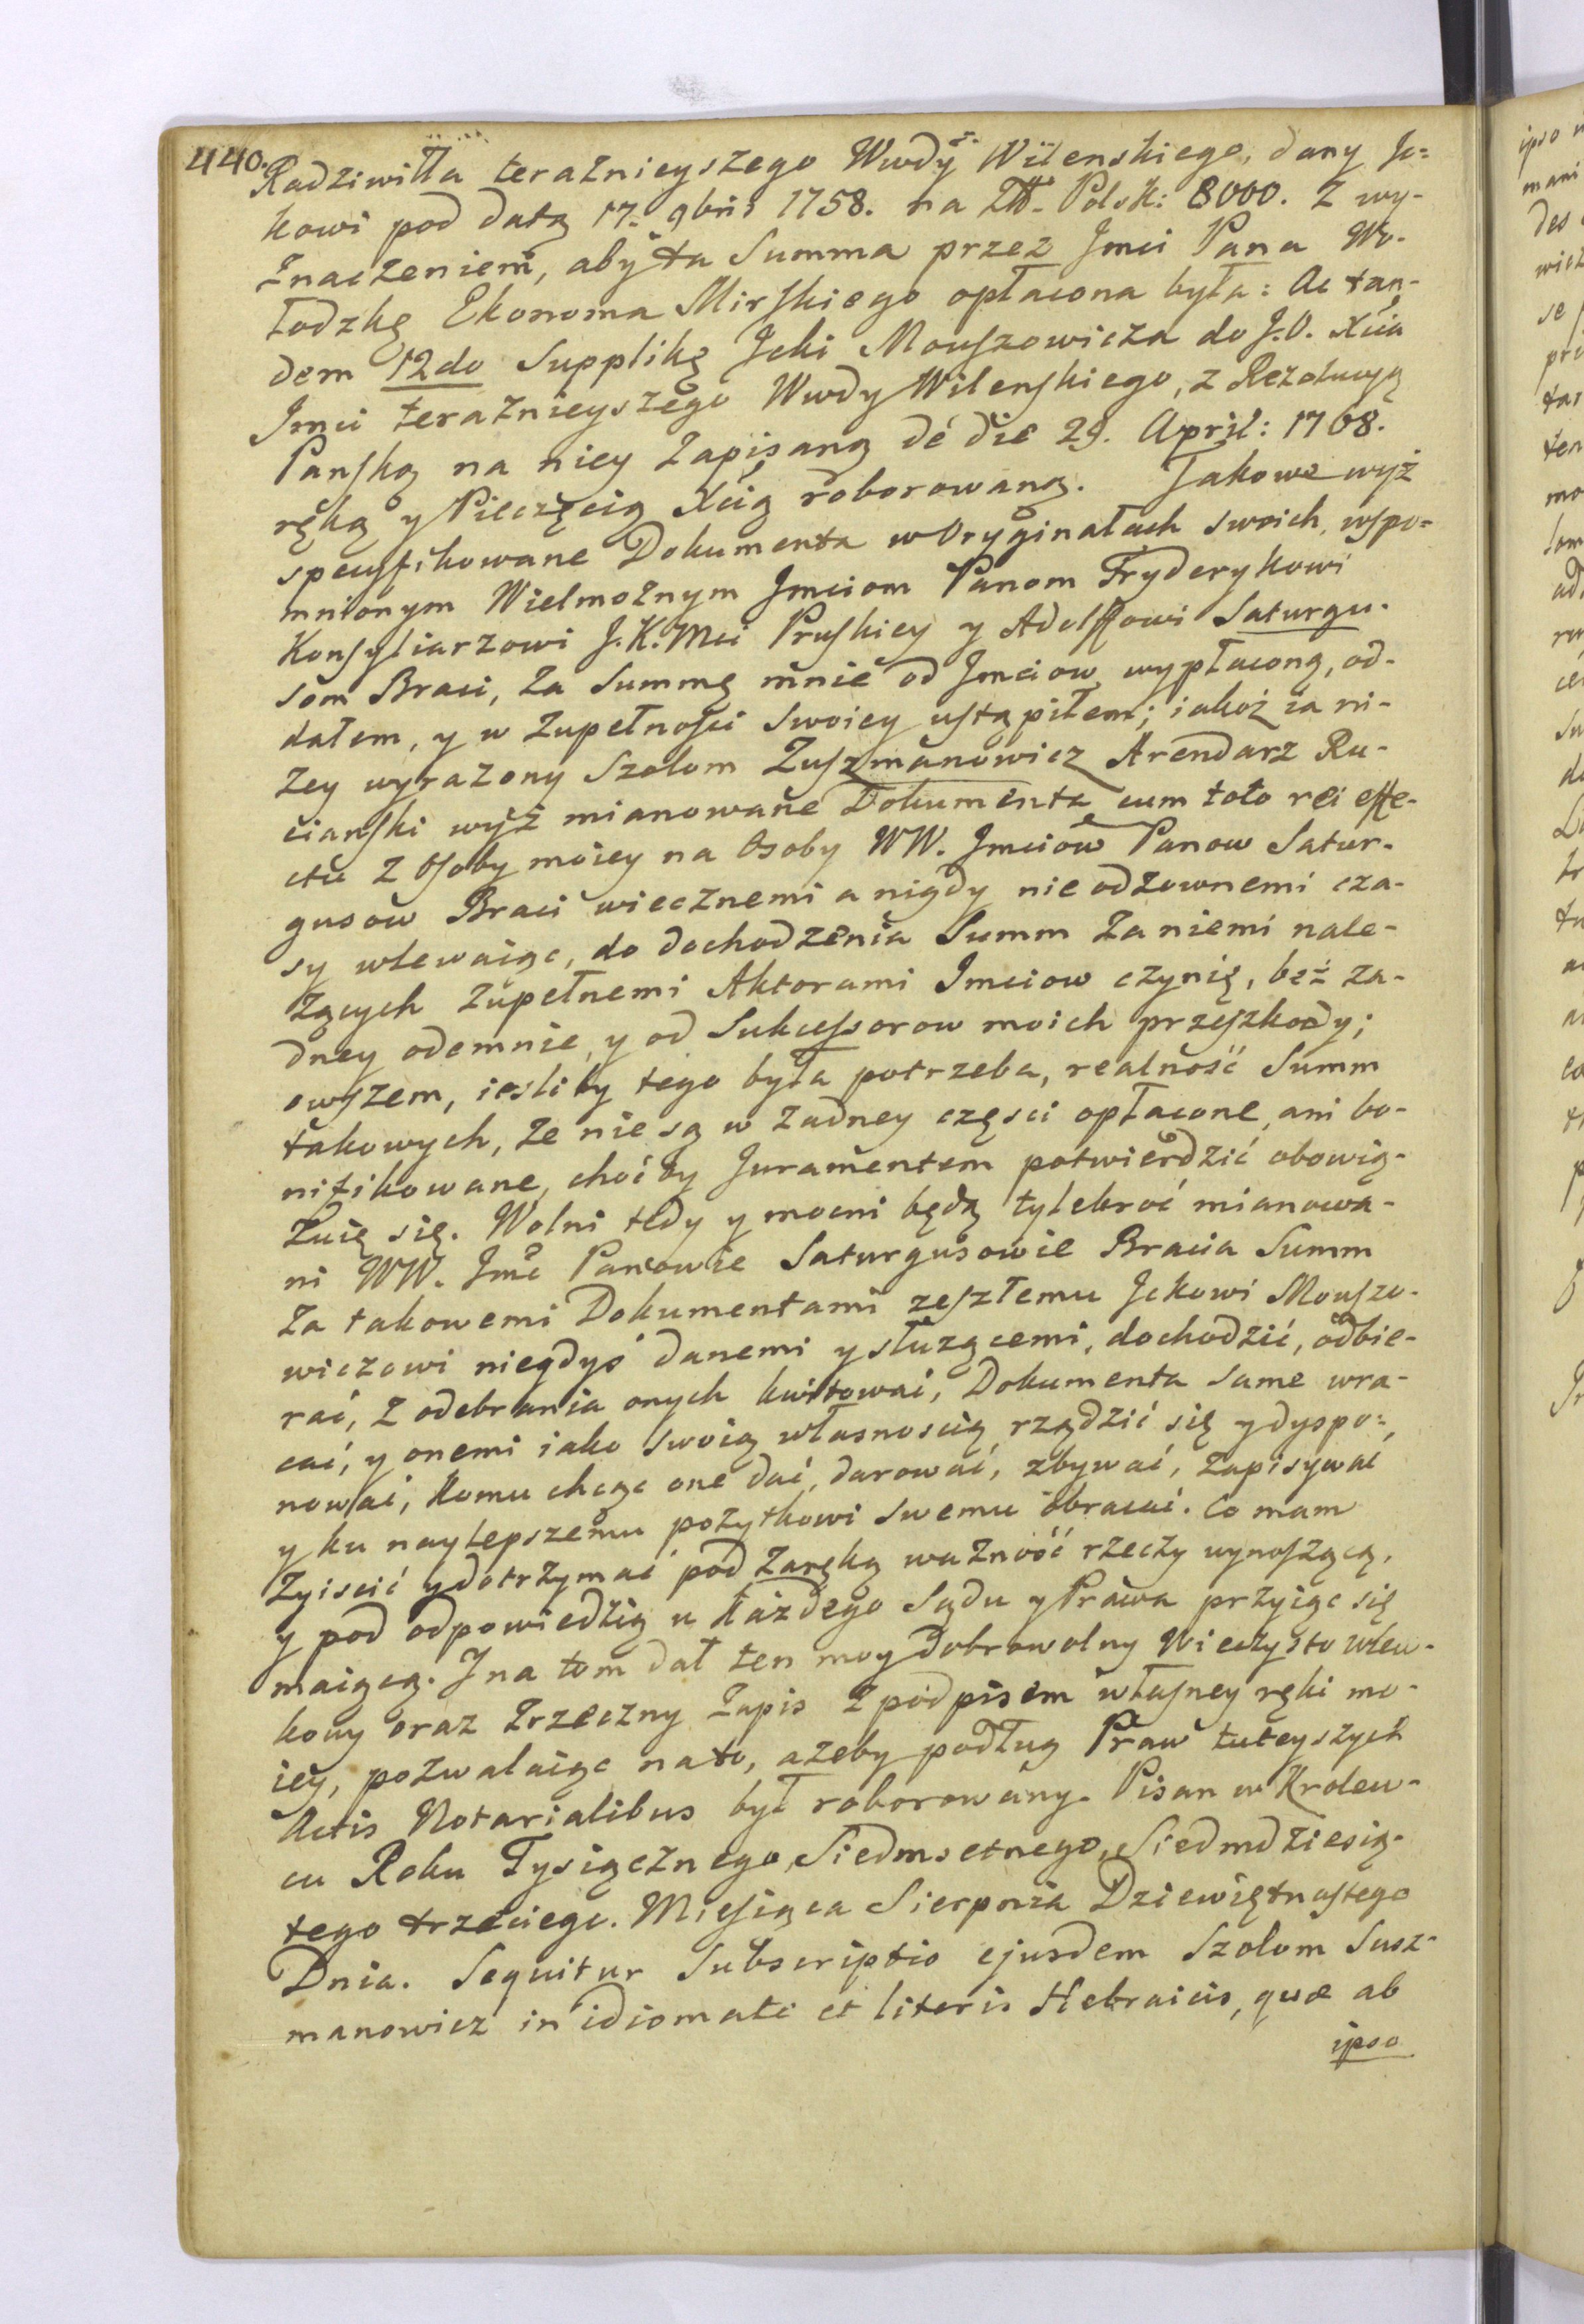 440.
Radziwiłła teraznieyszego Wwdy Wilenskiego, dany Jc=
kowi pod datą 17. 9bris 1758. na Zł. Polsk: 8000. z wy-
znaczeniem, aby ta Summa przez Jmci Pana Wo-
łodzkę Ekonoma Mirskiego opłacona była: Ac tan-
dem 12do Supplikę Jcki Mouszowicza do J.O. Xcia
Jmci teraznieyszego Wwdy Wilenskiego, z Rezolucyą
Panską na niey zapisaną de die 29. April: 1768.
ręką y Pieczęcią Xcią roborowaną. Jakowe wyż
specyfikowane Dokumenta w Oryginałach swoich, wspo=
mnionym Wielmożnym Jmciom Panom Fryderykowi
Konsyliarzowi J.K.Mci Pruskiey y Adolffowi Saturgu-
som Braci, za Summę mnie od Jmciow wypłaconą, od-
dałem, y w zupełności swoiey ustąpiłem; iakoż ia ni-
zey wyrazony Szolom Zuszmanowicz Arendarz Ru-
cianski wyż mianowane Dokumenta cum toto rei effe-
ctu z Osoby moiey na Osoby WW. Jmciow Panow Satur-
gusow Braci wiecznemi a nigdy nieodzownemi cza-
sy wlewaiąc, do dochodzenia Summ za niemi nale-
zących zupełnemi Aktorami Jmciow czynię, bez za-
dney odemnie, y od Sukcessorow moich przeszkody;
owszem, iesliby tego była potrzeba, realność Summ
takowych, ze nie są w zadney częsci opłacone, ani bo-
nifikowane, choćby Juramentem potwierdzić obowią-
zuię się. Wolni tedy y mocni będą tylekroć mianowa-
ni WW. Jmc Panowie Saturgusowie Bracia Summ
za takowemi Dokumentami zeszłemu Jckowi Mouszo-
wiczowi niegdyś danemi y słuzącemi, dochodzić, odbie-
rać, z odebrania onych kwitować, Dokumenta same wra-
cać, y onemi iako swoią własnoscią rządzić się y dyspo=
nować, komu chcąc one dać, darować, zbywać, zapisywać
y ku naylepszemu pożytkowi swemu obracać. Co mam
zyiscić y dotrzymać pod zaręką ważność rzeczy wynoszącą,
y pod odpowiedzią u każdego Sądu y Prawa przyiąc się
maiącą. J na tom dał ten moy dobrowolny Wieczysto wlew-
kowy oraz zrzeczny zapis z podpisem własney ręki mo-
iey, pozwalaiąc na to, azeby podług Praw tuteyszych
Actis Notarialibus był roborowany. Pisan w Krolew-
cu Roku Tysiącznego, Siedmsetnego, Siedmdziesią-
tego trzeciego. Miesiąca Sierpnia Dziewiętnastego
Dnia. Sequitur Subscriptio ejusdem Szolom Susz-
manowicz in idiomate et literis Hebraicis, quæ ab
ipso